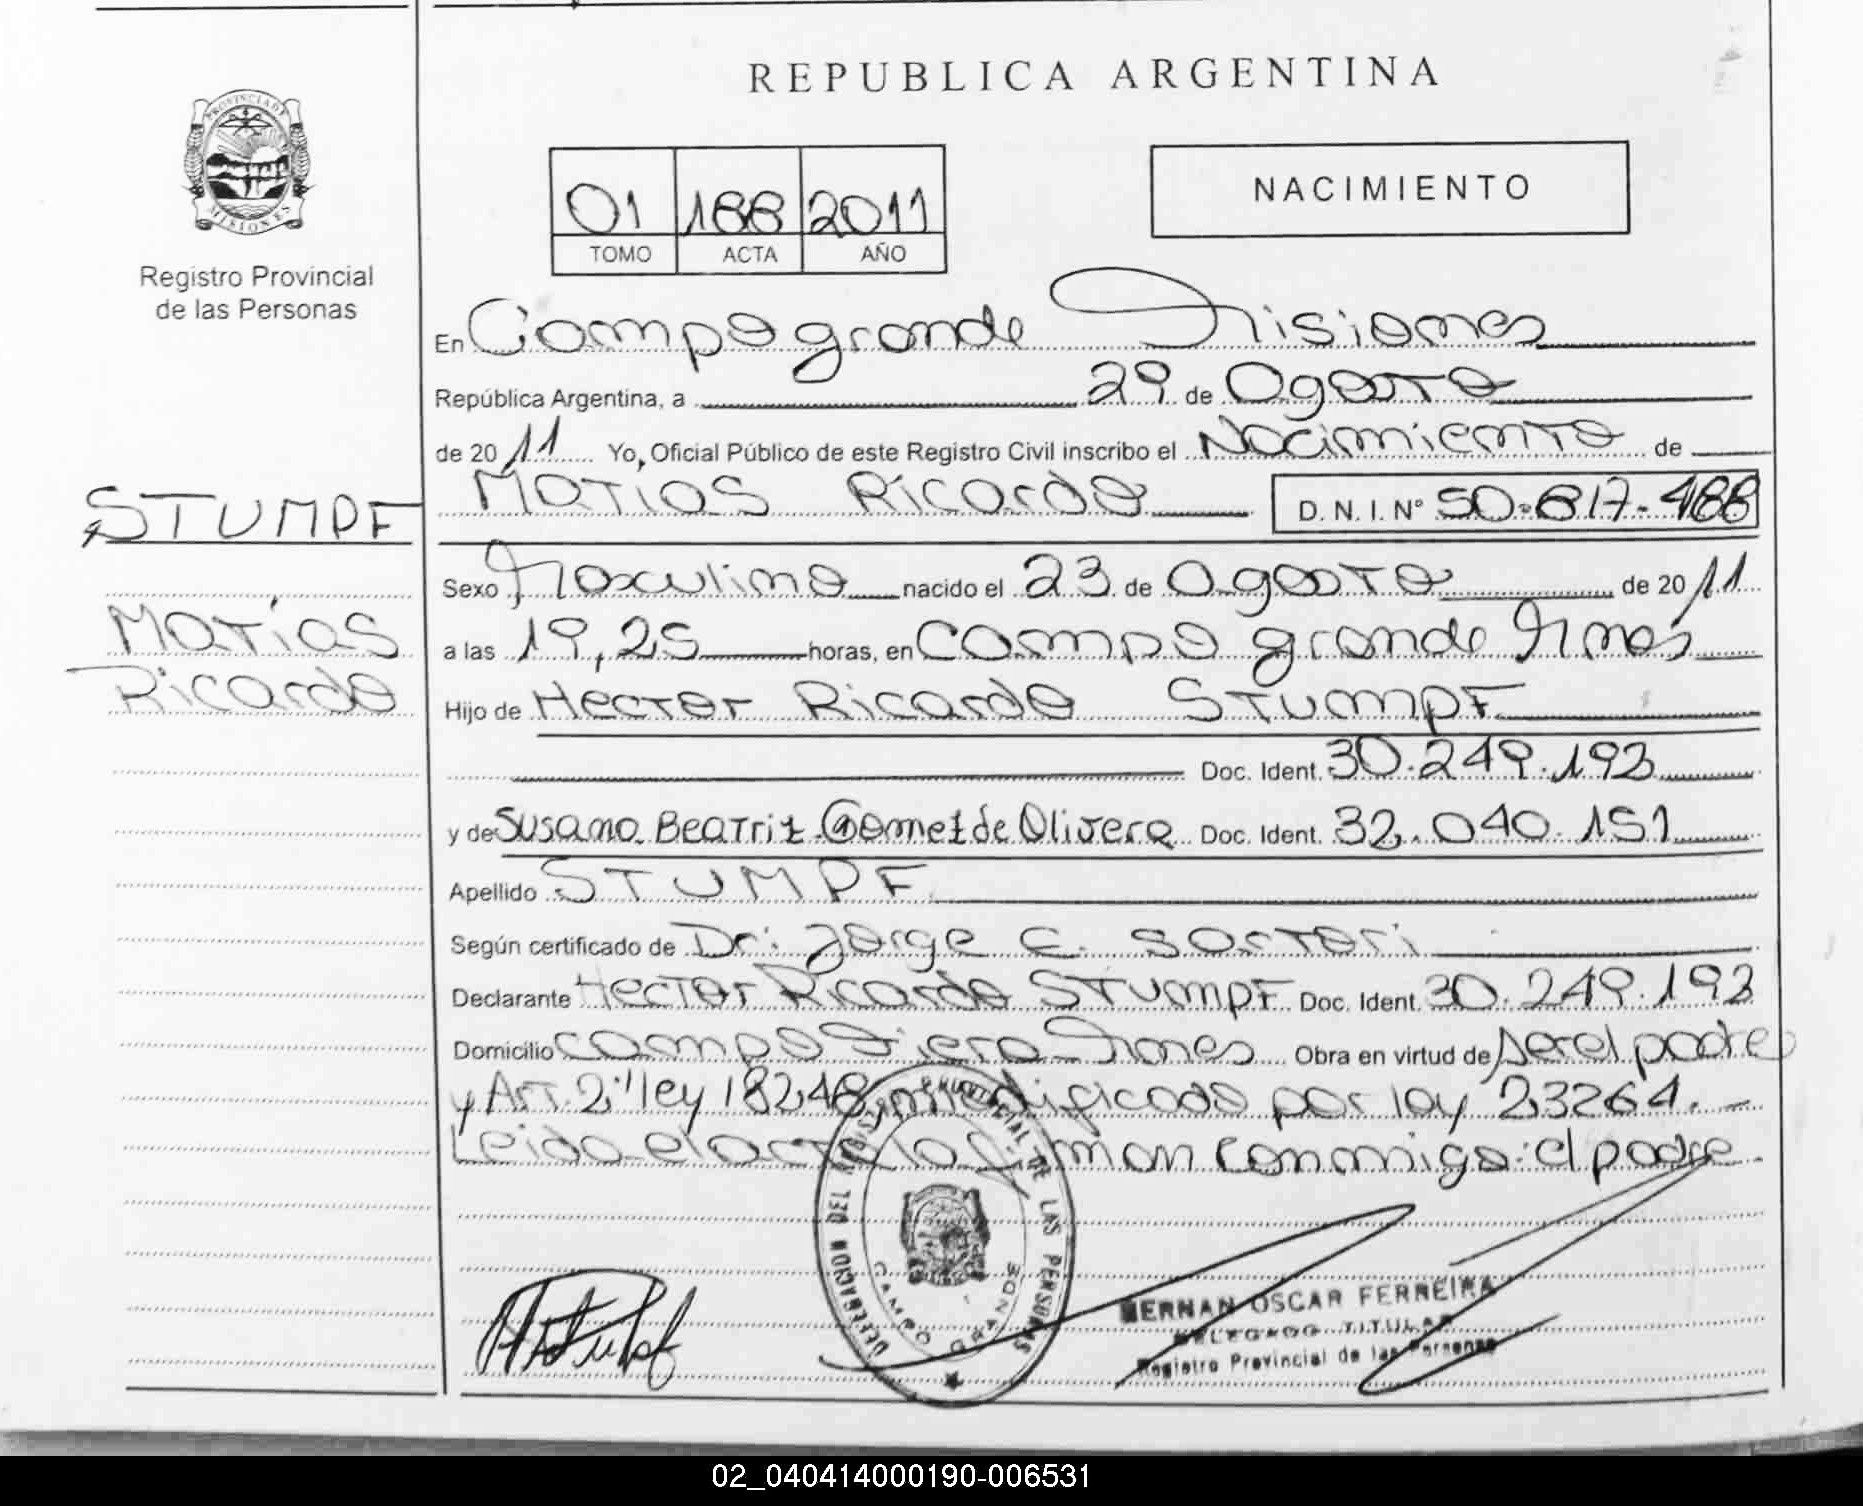 REPUBLICA ARGENTINA
PROVINCIA DE
MISIONES
Registro Provincial
de las Personas
01 188 2011
TOMO ACTA AÑO
NACIMIENTO
En Campo grande Misiones
República Argentina, a 29 de Agosto
de 2011 Yo, Oficial Público de este Registro Civil inscribo el Nacimiento de
STUMPF
Matias Ricardo D. N. I. Nº 50.817.488
Sexo Masculino nacido el 23 de Agosto de 2011
Matías
Ricardo
a las 19,25 horas, en Campo grande Mnes
Hijo de Hector Ricardo Stumpf
Doc. Ident. 30.249.193
y de Susana Beatriz Gomez de Olivera Doc. Ident. 32.040.151
Apellido STUMPF
Según certificado de Dr. Jorge E. Sartori
Declarante Hector Ricardo Stumpf Doc. Ident. 30.249.193
Domicilio Campo Viera Mnes Obra en virtud de ser el padre
y Art. 2º ley 18248 modificado por ley 23264.-
Leida el acta la firman conmigo: el padre
DELEGACION DEL REGISTRO PROVINCIAL DE LAS PERSONAS
CAMPO GRANDE
HERNAN OSCAR FERREIRA
DELEGADO TITULAR
Registro Provincial de las Personas
02_040414000190-006531